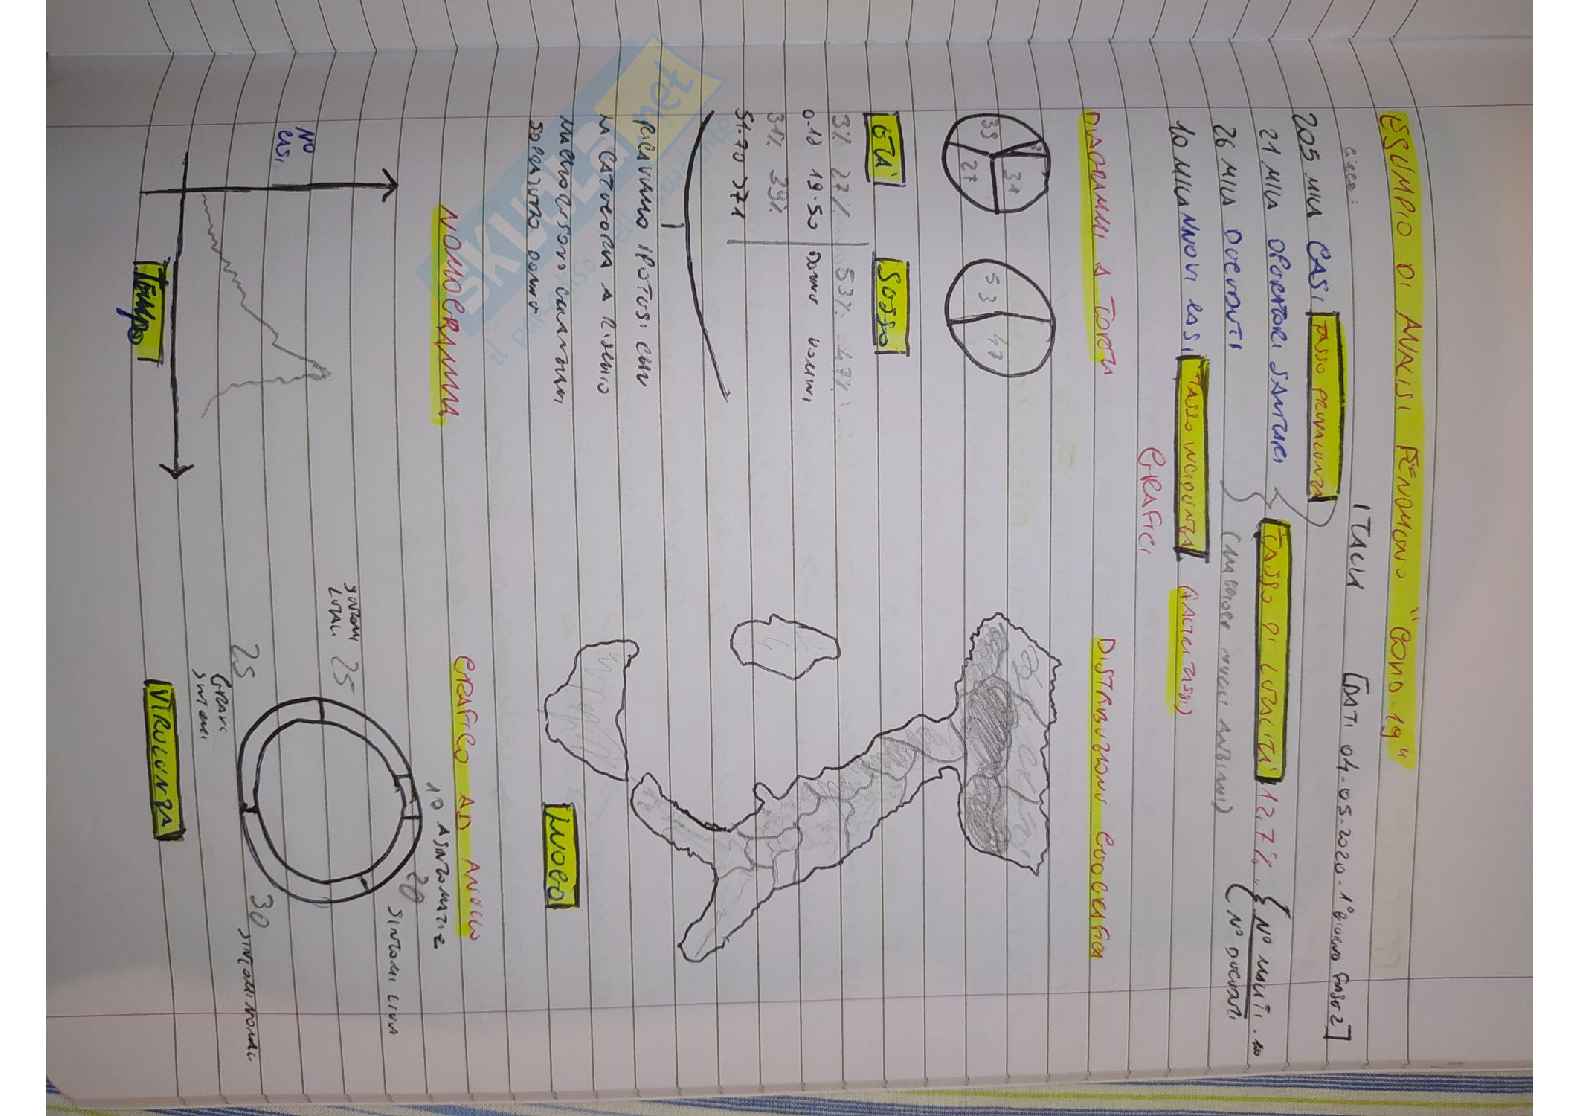 ESEMPIO DI ANALISI FENOMENO "COVID-19"
circa:
ITALIA [DATI 04-05-2020-1° GIORNO FASE 2]
205 MILA CASI TASSO PREVALENZA
21 MILA OPERATORI SANITARI TASSO DI LETALITÀ 12,7%
N° MALATI
N° DECEDUTI
26 MILA DECEDUTI (MAGGIOR ANZIANI)
10 MILA NUOVI CASI TASSO INCIDENZA (ALTRI TASSI)
GRAFICI
DIAGRAMMI A TORTA
39 31 27
53 47
ETÀ SESSO
3% 27% 53% 47%
0-18 19-50 DONNE UOMINI
31% 39%
51-70 >71
RICAVIAMO IPOTESI CHE
LA CATEGORIA A RISCHIO
SOPRATTUTTO DONNE
DISTRIBUZIONE GEOGRAFICA
LUOGO
NOMOGRAMMA
N° CASI
TEMPO
GRAFICO AD ANELLO
10 ASINTOMATIZ
20 SINTOMI LIEVI
30 SINTOMI NORMALI
25 GRAVI SINTOMI
SINTOMI LETALI 25
VIRULENZA
SKUOLA.net